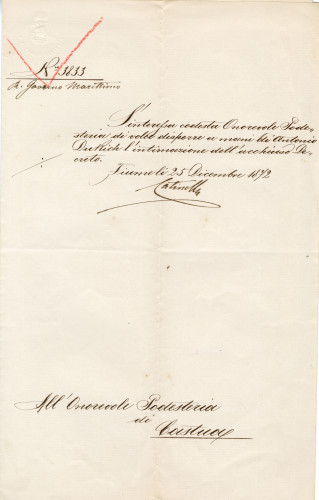 No 3833
R. Governo Marittimo
S'interessa codesta Onorevole Podes-
teria di voler disporre a mani di Antonio
Dukich l'intimazione dell'accluso De-
creto.
Fiume li 25 Dicembre 1872
All' Onorevole Podesteria
di
Castua